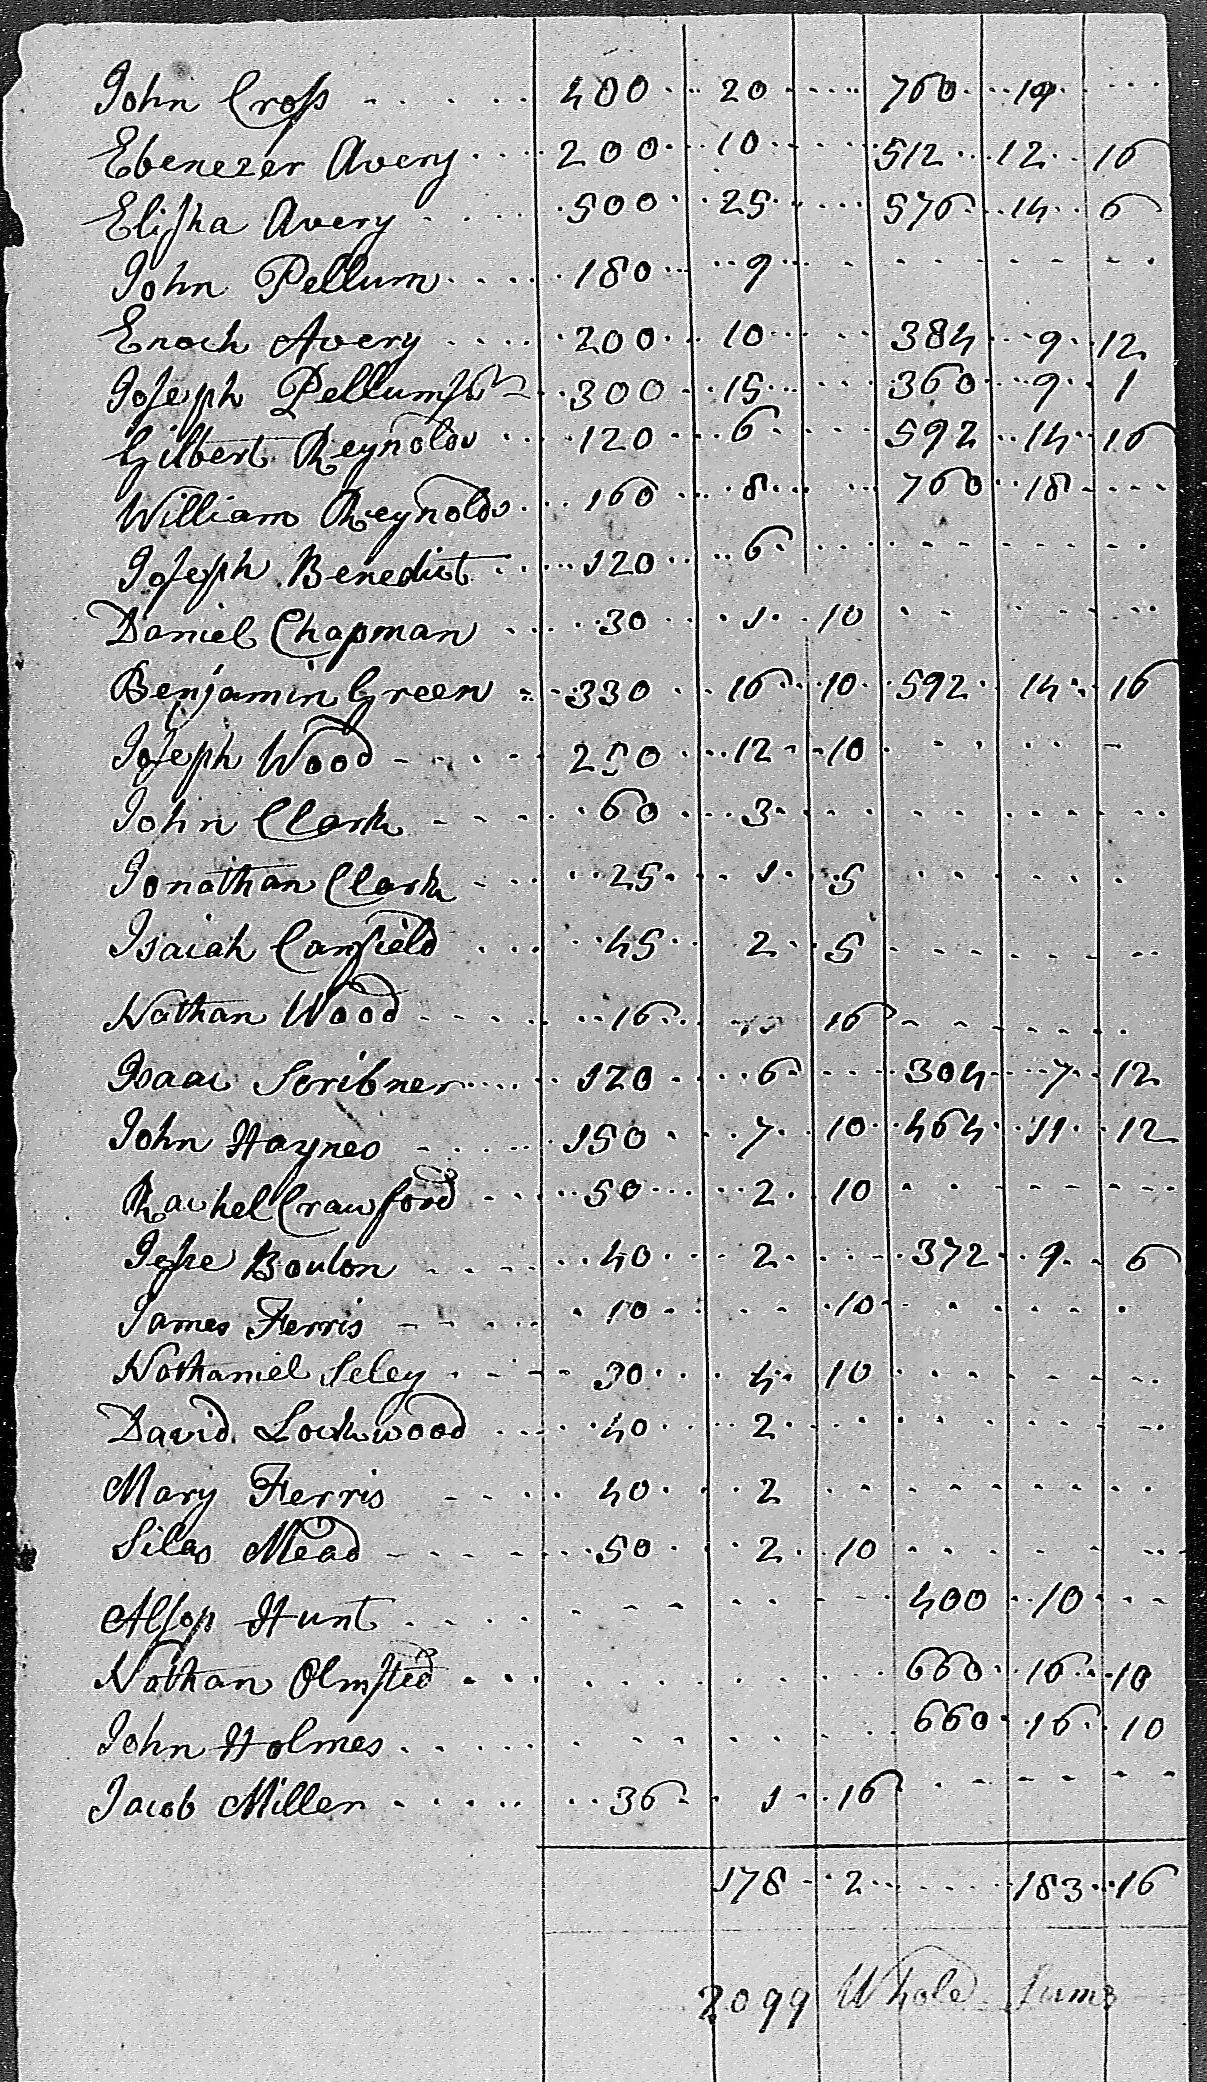 John Cross 400 20 760 19
Ebenezer Avery 200 10 512 12 16
Elisha Avery 500 25 576 14 6
John Pellum 180 9
Enoch Avery 200 10 384 9 12
Joseph Pellum 300 15 360 9 1
Gilbert Reynolds 120 6 592 14 16
William Reynolds 160 8 760 18
Joseph Benedict 120 6
Daniel Chapman 30 1 10
Benjamin Green 330 16 10 592 14 16
Joseph Wood 250 12 10
John Clark 60 3
Jonathan Clark 25 1 5
Isaiah Canfield 45 2 5
Nathan Wood 16 16
Isaac Scribner 120 6 304 7 12
John Haynes 150 7 10 464 11 12
Rachel Crawford 50 2 10
Jesse Bouton 40 2 372 9 6
James Ferris 10 10
Nathaniel Seley 30 4 10
David Lockwood 40 2
Mary Ferris 40 2
Silas Mead 50 2 10
Alsop Hunt 400 10
Nathan Olmsted 660 16 10
John Holmes 660 16 10
Jacob Miller 36 1 16
178 2 183 16
2099 Whole Sums